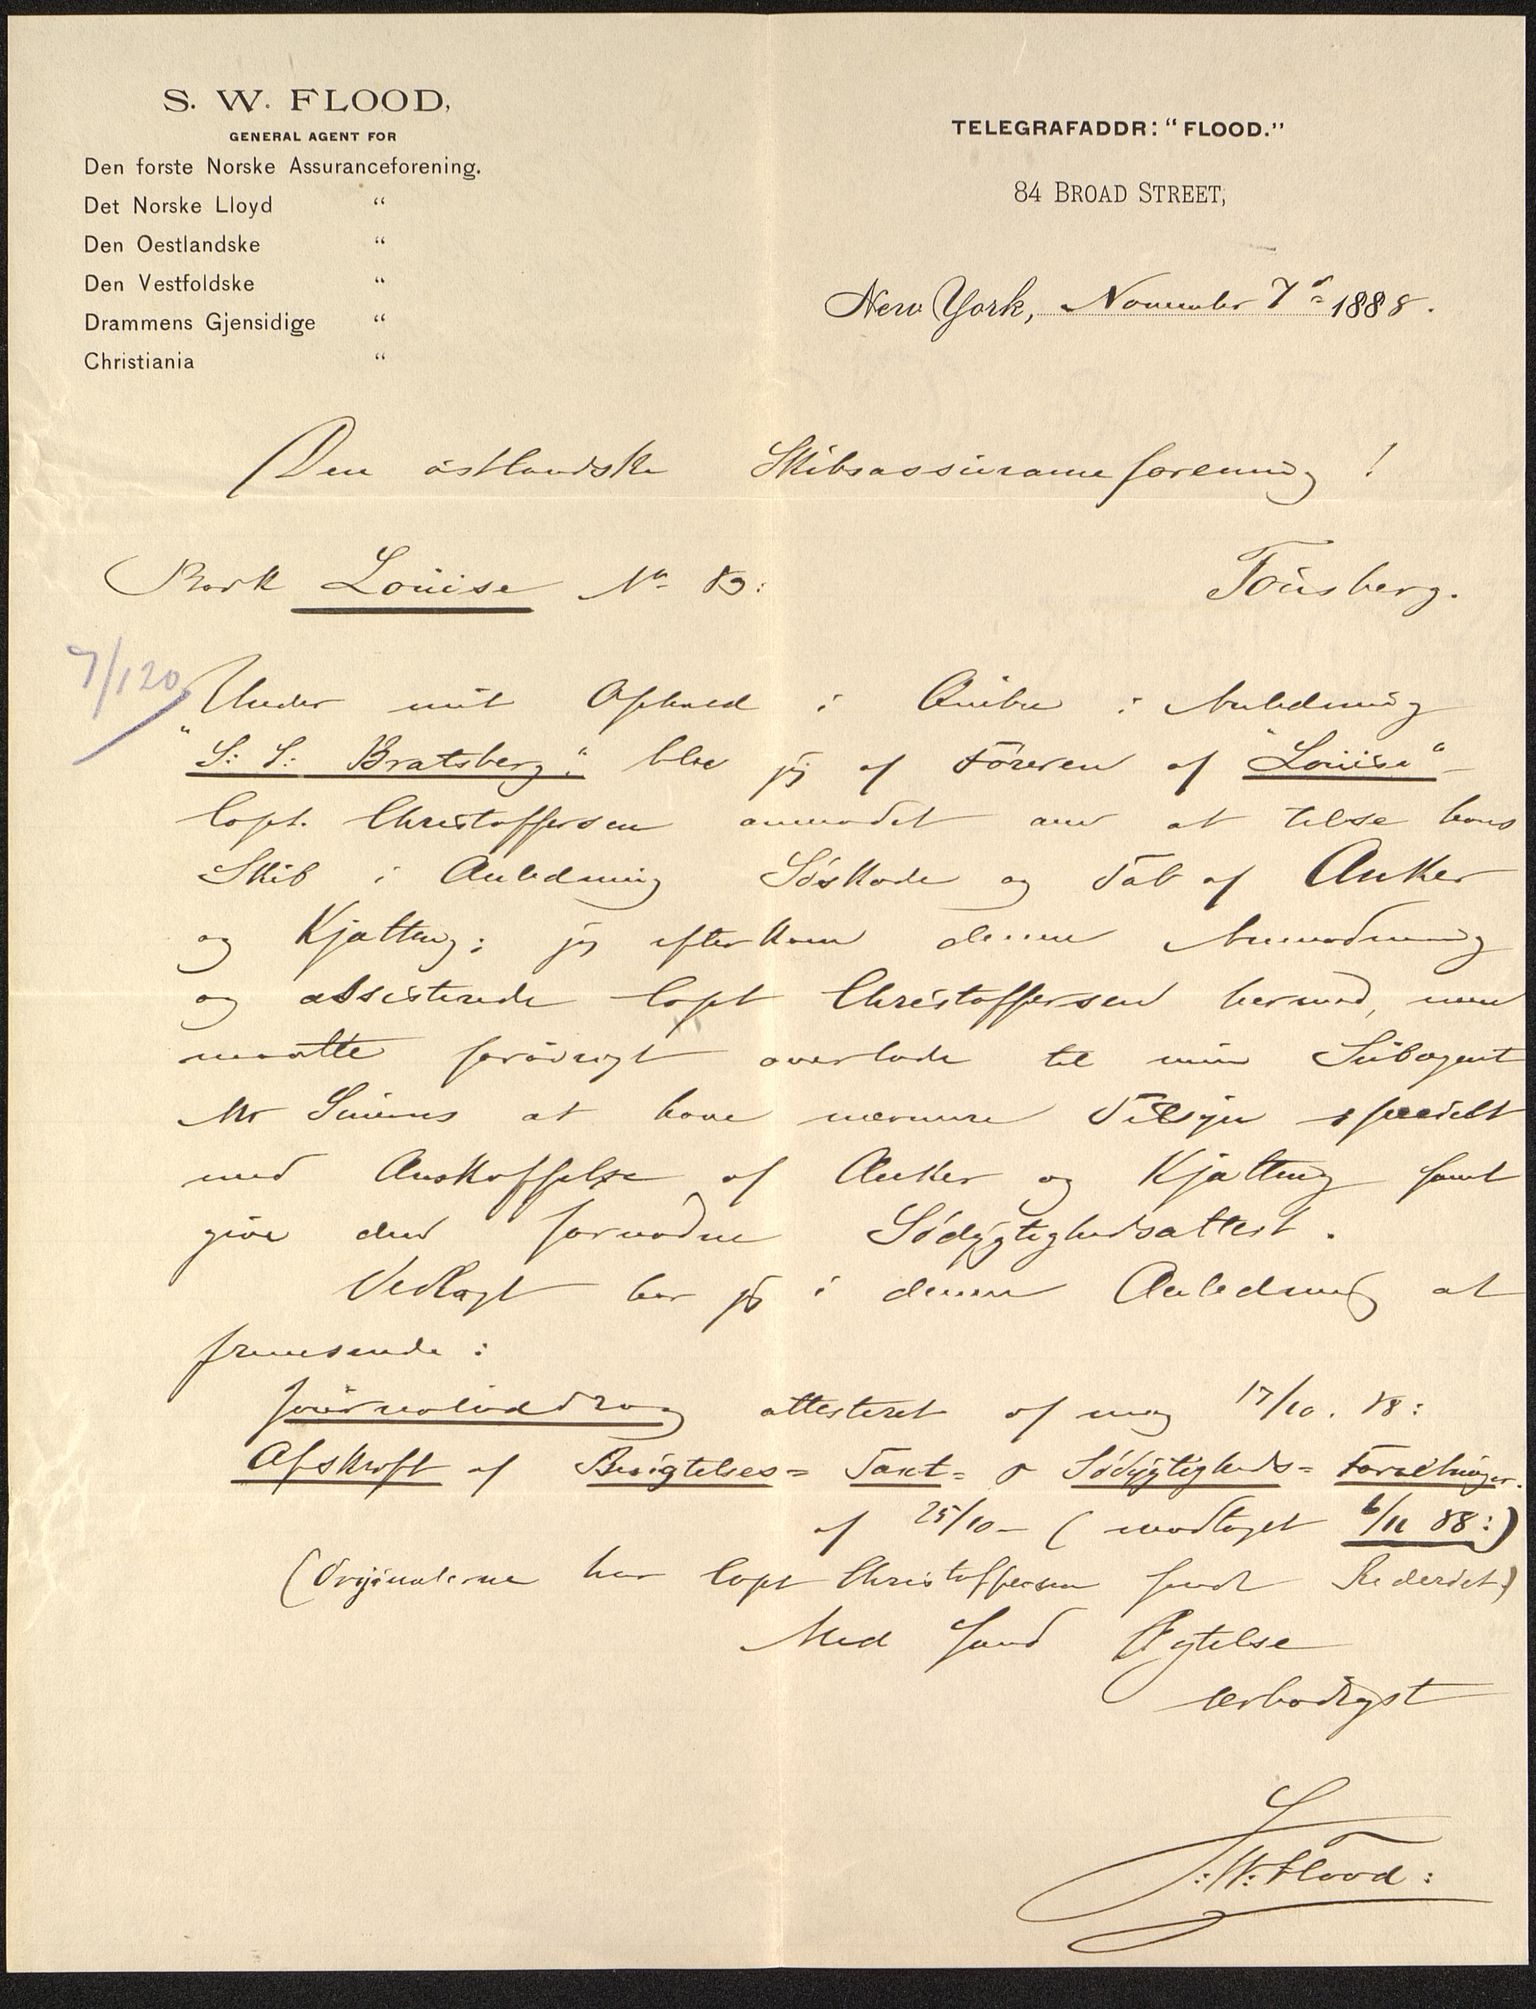 S. W. FLOOD,
GENERAL AGENT FOR
Den forste Norske Assuranceforening.
Det Norske Lloyd "
Den Oestlandske "
Den Vestfoldske "
Drammens Gjensidige "
Christiania "
TELEGRAFADDR: "FLOOD."
84 BROAD STREET,
New York, November 7d 1888.
Den östlandske Skibsassuranceforening!
Bark Louise No 83:
Tönsberg.
7/120
Under mit Ophold i i Anledning
"S: S: Bratsberg" blev jeg af Föreren af "Louise"
Capt. Christoffersen anmodet om at tilse hans
Skib i Anledning Söskade og Tab af Anker
og Kjætting; jeg efterkom denne Anmodning
og assisterede Capt Christoffersen hermed, men
maatte forövrigt overlade til min Subagent
Mr at have nærmere Tilsyn specielt
med Anskaffelse af Anker og Kjætting samt
give den fornödne Södygtighedsattest.
Vedlagt har jeg i denne Anledning at
fremsende:
Journaluddrag attesteret af mig 17/10. 88:
Afskrift af Besigtelses= Taxt= & Södygtigheds= Forretninger.
af 25/10 – (modtaget 6/11 88:)
(Originalerne har Capt Christoffersen sendt Rederiet)
Med sand Agtelse
ærbödigst
S:W:Flood: